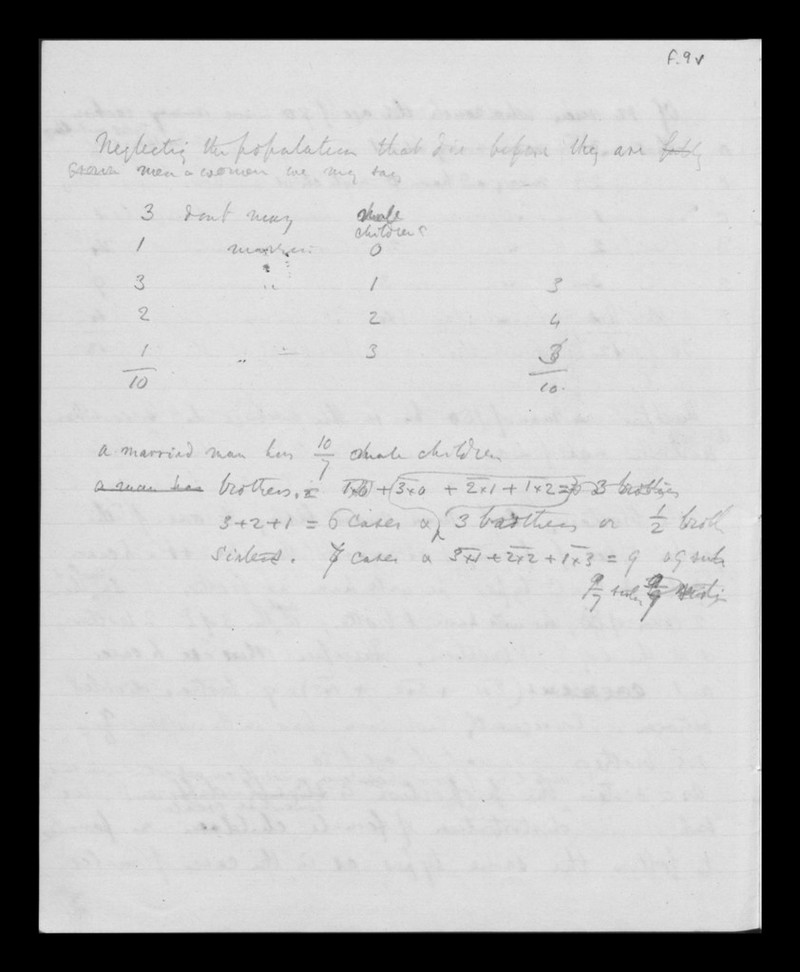 f.9v
Neglecting the population that die before they are fully
grown men & women we may say
3 dont marry male
children
1 marries 0
3 " 1 3
2 2 4
1 " " 3 3
10 10
a married man has 10/7 male children
a man has brothers. 1x0 + 3x0 + 2x1 + 1x2 = 3 brothers
3+2+1 = 6 cases & 3 brothers or 1/2 broth
Sisters. 7 cases & 3x1 + 2x2 + 1x3 = 9
9/7